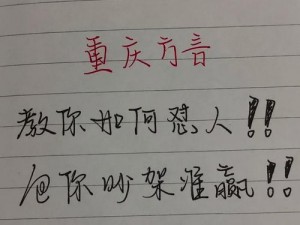 重庆方音
教你如何怼人!!
包你吵架准赢!!